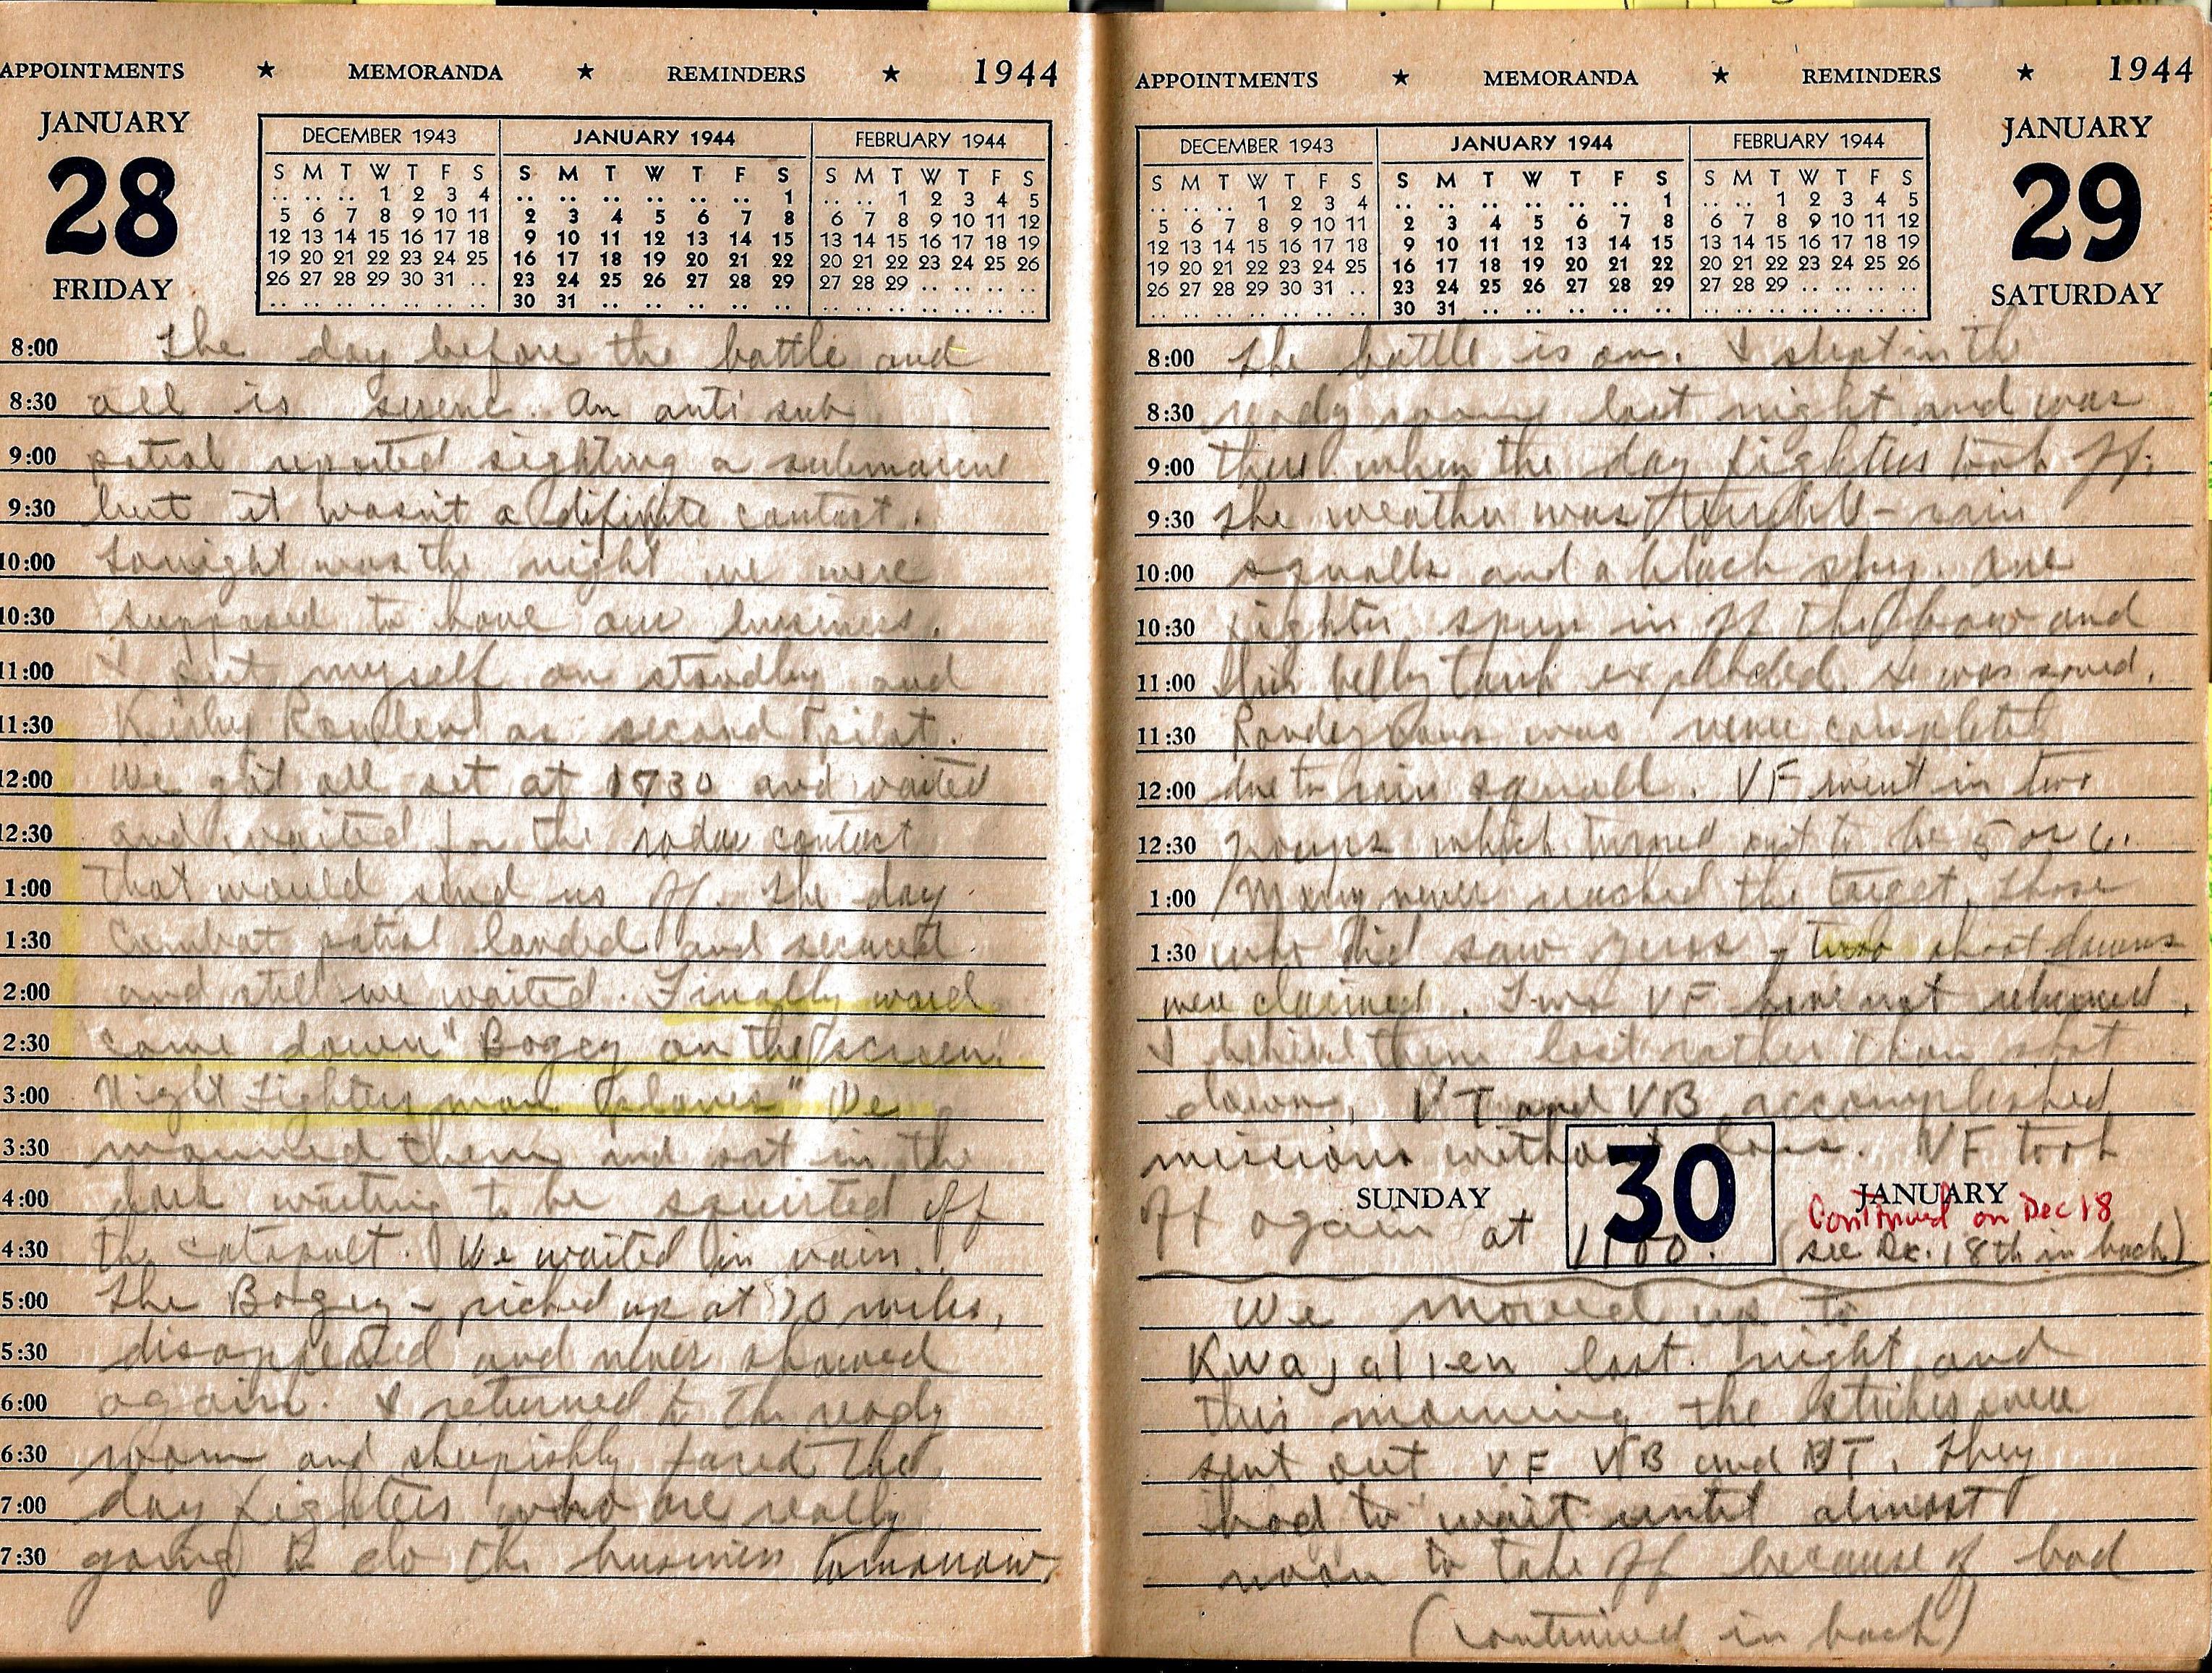 APPOINTMENTS ★ MEMORANDA ★ REMINDERS ★ 1944
JANUARY
28
FRIDAY
DECEMBER 1943
S M T W T F S
.. .. .. 1 2 3 4
5 6 7 8 9 10 11
12 13 14 15 16 17 18
19 20 21 22 23 24 25
26 27 28 29 30 31 ..
.. .. .. .. .. .. ..
JANUARY 1944
S M T W T F S
.. .. .. .. .. .. 1
2 3 4 5 6 7 8
9 10 11 12 13 14 15
16 17 18 19 20 21 22
23 24 25 26 27 28 29
30 31 .. .. .. .. ..
FEBRUARY 1944
S M T W T F S
.. .. 1 2 3 4 5
6 7 8 9 10 11 12
13 14 15 16 17 18 19
20 21 22 23 24 25 26
27 28 29 .. .. .. ..
.. .. .. .. .. .. ..
8:00 The day before the battle and
8:30 all is serene. An anti sub
9:00 patrol reported sighting a submarine
9:30 but it wasn't a difinite contact.
10:00 Tonight was the night we were
10:30 supposed to have our business.
11:00 I put myself on standby and
11:30 as second pilot.
12:00 We got all set at 1730 and waited
12:30 and waited for the radar contact
1:00 That would send us off. The day
1:30 Combat patrol landed and secured
2:00 and still we waited. Finally word
2:30 came down "Bogey on the screen.
3:00 Night Fighters man planes" We
3:30 manned them and sat in the
4:00 dark waiting to be squirted off
4:30 the catapult. We waited in vain.
5:00 The Bogey - picked up at 70 miles,
5:30 disappeared and never showed
6:00 again. I returned to the ready
6:30 room and sheepishly faced the
7:00 day fighters who are really
7:30 going to do the business tomorrow.
APPOINTMENTS ★ MEMORANDA ★ REMINDERS ★ 1944
DECEMBER 1943
S M T W T F S
.. .. .. 1 2 3 4
5 6 7 8 9 10 11
12 13 14 15 16 17 18
19 20 21 22 23 24 25
26 27 28 29 30 31 ..
.. .. .. .. .. .. ..
JANUARY 1944
S M T W T F S
.. .. .. .. .. .. 1
2 3 4 5 6 7 8
9 10 11 12 13 14 15
16 17 18 19 20 21 22
23 24 25 26 27 28 29
30 31 .. .. .. .. ..
FEBRUARY 1944
S M T W T F S
.. .. 1 2 3 4 5
6 7 8 9 10 11 12
13 14 15 16 17 18 19
20 21 22 23 24 25 26
27 28 29 .. .. .. ..
.. .. .. .. .. .. ..
JANUARY
29
SATURDAY
8:00 The battle is on. I slept in the
8:30 ready room last night and was
9:00 there when the day fighters took off.
9:30 The weather was terrible - rain
10:00 squalls and a black sky. One
10:30 fighter spun in off the bow and
11:00 his belly tank exploded. He was saved.
11:30 Rendezvous was never completed
12:00 due to rain squall. VF went in two
12:30 groups which turned out to be 5 or 6.
1:00 Many never reached the target. Those
1:30 who did saw Zeros - two shootdowns
were claimed. Two VF have not returned.
I believe them lost rather than shot
down. VT and VB accomplished
missions without loss. VF took
off again at 1100. (see Dec. 18th in back)
SUNDAY 30 JANUARY
Continued on Dec 18
We moved up to
Kwajalien last night and
this morning the strikes were
sent out VF VB and VT. They
had to wait until almost
noon to take off because of bad
(continued in back)